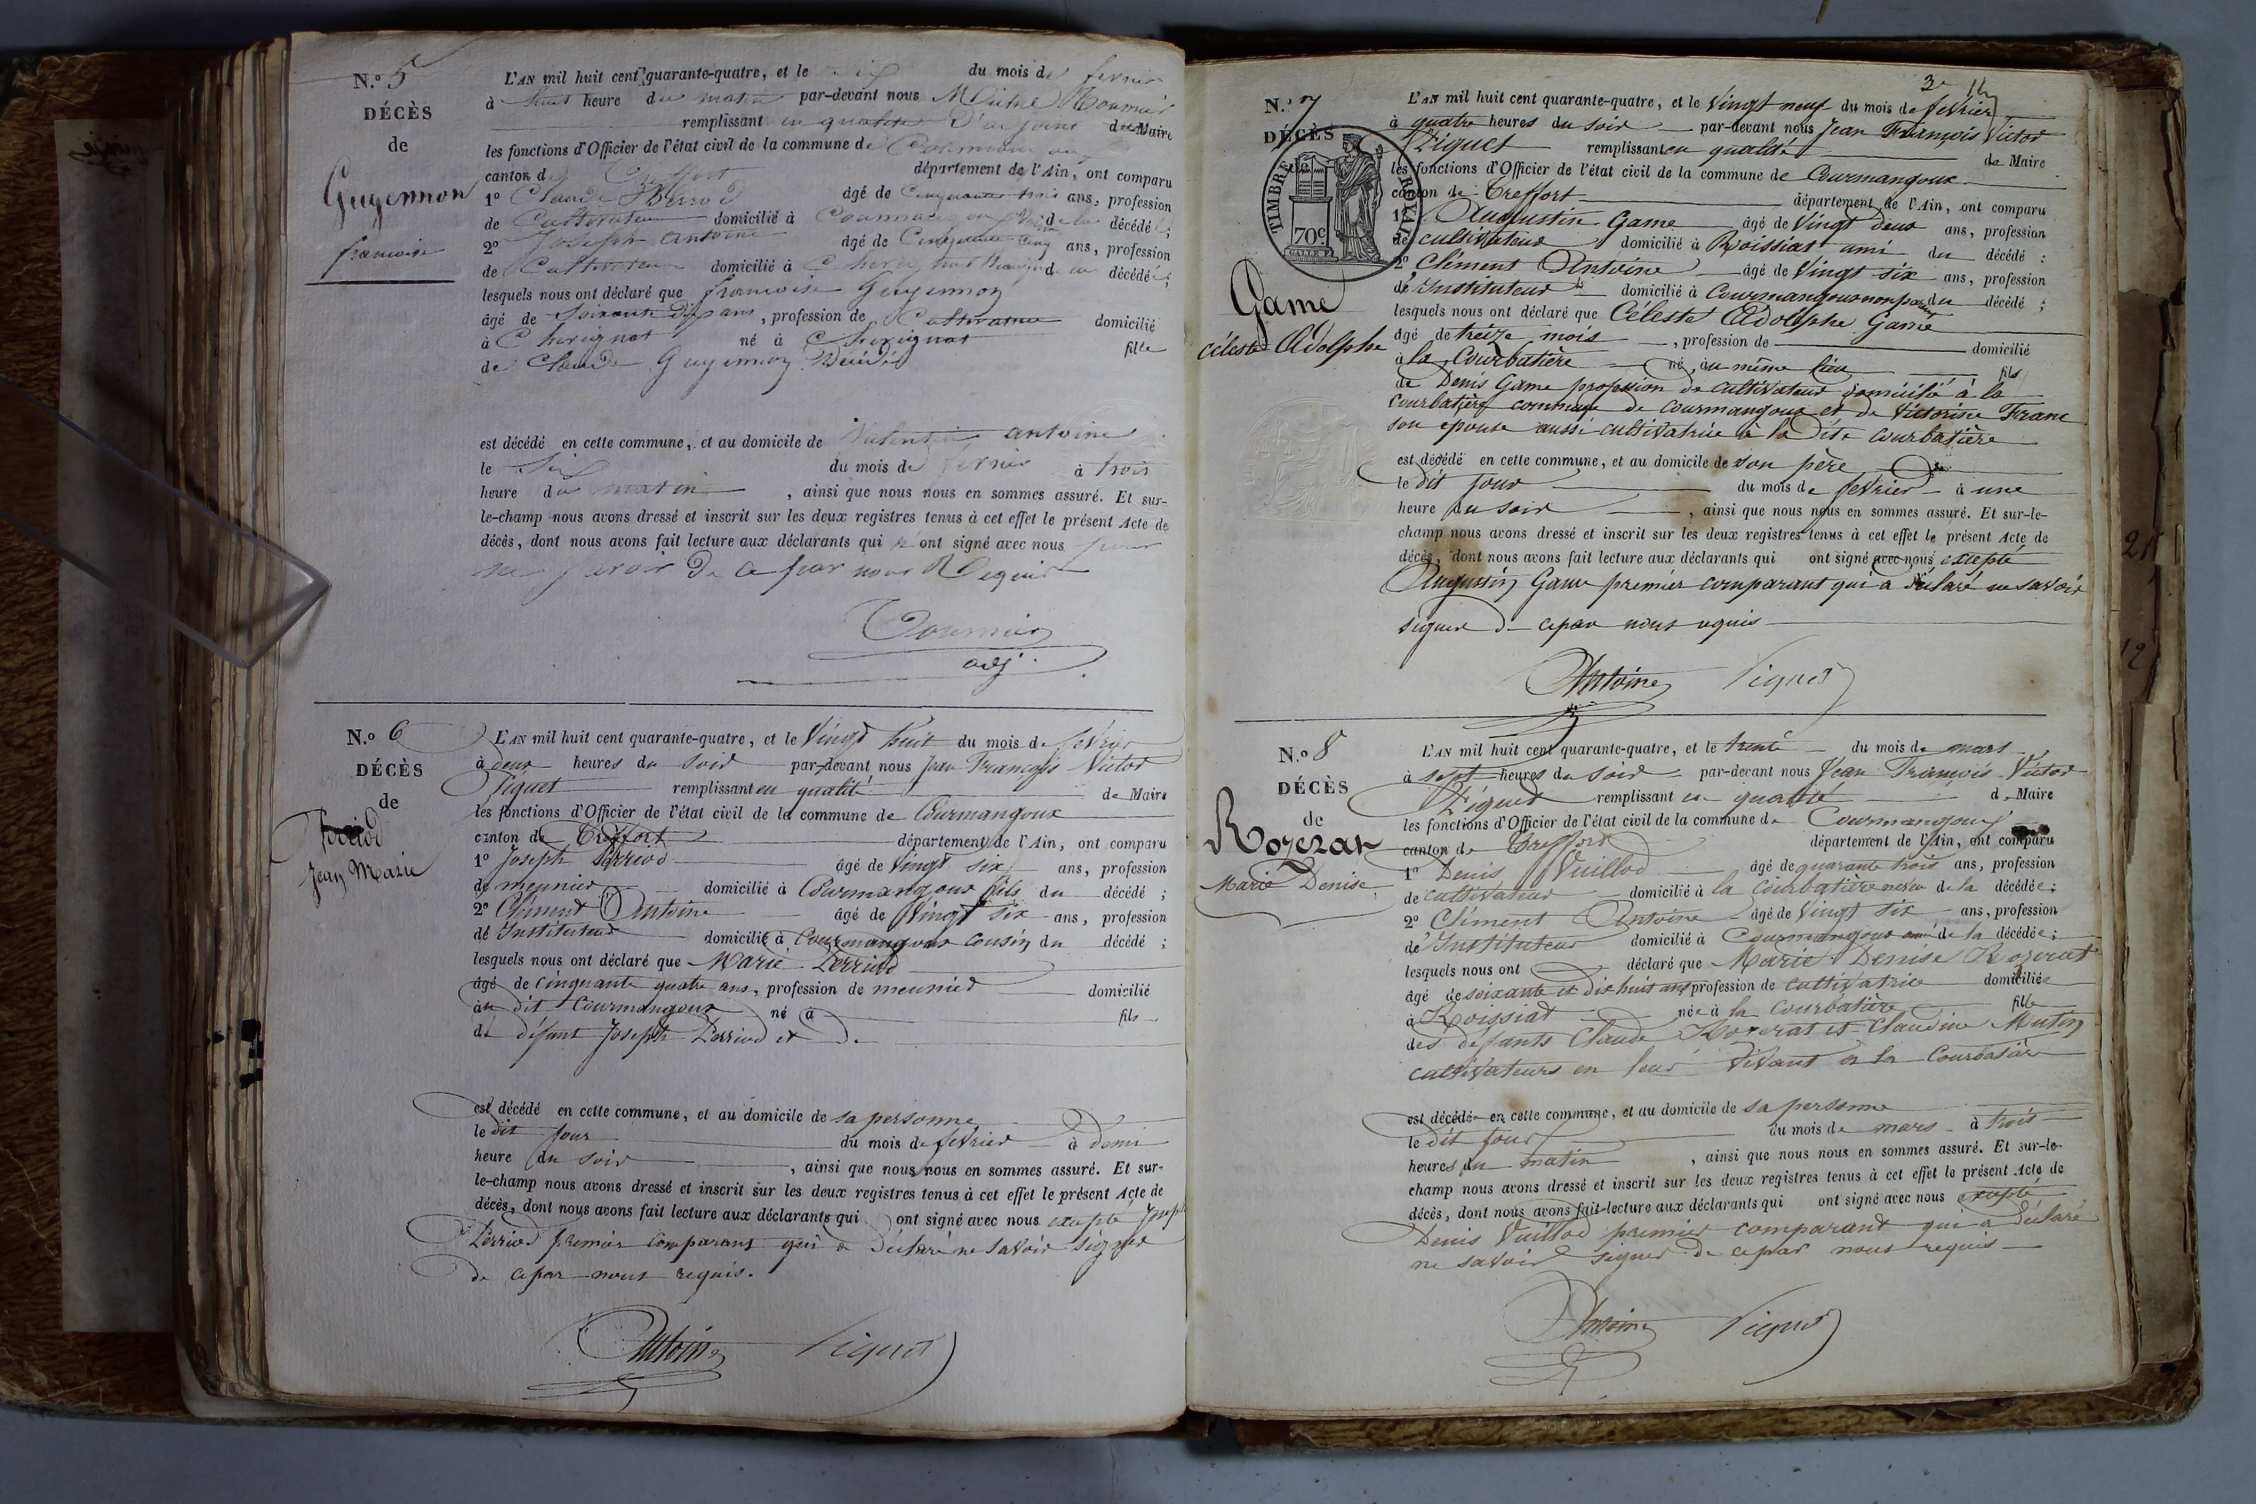 N.o 5
DÉCÈS
de
Guyennon
francoise
L'AN mil huit cent quarante-quatre, et le six du mois de fevrier
à huit heure du matin par-devant nous
remplissant en qualité d'adjoint de Maire
les fonctions d'Officier de l'état civil de la commune de
canton de Treffort département de l'Ain, ont comparu
1o Claude Perrod âgé de Cinquante trois ans, profession
de Cultivateur domicilié à Courmangoux de la décédé ;
2o Joseph antoine âgé de Cinquante cinq ans, profession
de Cultivateur domicilié à de la décédé ;
lesquels nous ont déclaré que francoise Guyennon
âgé de Soixante Dix ans, profession de Cultivatrice domicilié
à Chevignat né à Chevignat fille
de Claude Guyennon Décédé
est décédé en cette commune, et au domicile de Valentin antoine
le Six du mois de fevrier à trois
heure du matin, ainsi que nous nous en sommes assuré. Et sur-
le-champ nous avons dressé et inscrit sur les deux registres tenus à cet effet le présent Acte de
décès, dont nous avons fait lecture aux déclarants qui n'ont signé avec nous pour
ne savoir De ce par nous Requis
adj.
N.o 6
DÉCÈS
de
Perriod
Jean Marie
L'AN mil huit cent quarante-quatre, et le Vingt huit du mois de fevrier
à deux heures du soir par-devant nous Jean François Victor
Piquet remplissant en qualité de Maire
les fonctions d'Officier de l'état civil de la commune de Courmangoux
canton de Treffort département de l'Ain, ont comparu
1o Joseph Perriod âgé de Vingt six ans, profession
de meunier domicilié à Courmangoux fils du décédé ;
2o Clément Antoine âgé de Vingt six ans, profession
de Instituteur domicilié à Courmangoux cousin du décédé ;
lesquels nous ont déclaré que Marie Perriod
âgé de Cinquante quatre ans, profession de meunier domicilié
au dit Courmangoux né à fils
de défunt Joseph Perriod et De
est décédé en cette commune, et au domicile de sa personne
le dit jour du mois de fevrier à demi
heure du soir, ainsi que nous nous en sommes assuré. Et sur-
le-champ nous avons dressé et inscrit sur les deux registres tenus à cet effet le présent Acte de
décès, dont nous avons fait lecture aux déclarants qui ont signé avec nous excepté Joseph
Perriod premier comparant qui a déclaré ne savoir signer
de ce par nous requis.
Antoine Piquet
3e
N.o 7
DÉCÈS
TIMBRE ROYAL
70c
Game
Céleste Adolphe
L'AN mil huit cent quarante-quatre, et le Vingt neuf du mois de fevrier
à quatre heures du soir par-devant nous Jean François Victor
Piquet remplissant en qualité de Maire
les fonctions d'Officier de l'état civil de la commune de Courmangoux
canton de Treffort département de l'Ain, ont comparu
1o Augustin Game âgé de Vingt deux ans, profession
de cultivateur domicilié à Roissiat ami du décédé ;
2o Clément Antoine âgé de Vingt six ans, profession
de Instituteur domicilié à Courmangoux non parent du décédé ;
lesquels nous ont déclaré que Céleste Adolphe Game
âgé de treize mois, profession de domicilié
à la Courbatière né au même lieu fils
de Denis Game profession de cultivateur domicilié à la
Courbatière commune de Courmangoux et de Victorine Franc
son epouse aussi cultivatrice à la dite Courbatière
est décédé en cette commune, et au domicile de son père
le dit jour du mois de fevrier à une
heure du soir, ainsi que nous nous en sommes assuré. Et sur-le-
champ nous avons dressé et inscrit sur les deux registres tenus à cet effet le présent Acte de
décès, dont nous avons fait lecture aux déclarants qui ont signé avec nous excepté
Augustin Game premier comparant qui a déclaré ne savoir
signer de ce par nous requis
Antoine Piquet
N.o 8
DÉCÈS
de
Rozerat
Marie Denise
L'AN mil huit cent quarante-quatre, et le trente du mois de mars
à sept heures du soir par-devant nous Jean François Victor
Piquet remplissant en qualité de Maire
les fonctions d'Officier de l'état civil de la commune de Courmangoux
canton de Treffort département de l'Ain, ont comparu
1o Denis Vuillod âgé de quarante trois ans, profession
de cultivateur domicilié à la Courbatière neveu de la décédée ;
2o Clément Antoine âgé de Vingt six ans, profession
de Instituteur domicilié à Courmangoux ami de la décédée ;
lesquels nous ont déclaré que Marie Denise Rozerat
âgé de soixante et dix huit ans profession de cultivatrice domiciliée
à Roissiat née à la Courbatière fille
des défunts Claude Rozerat et Claudine Mutin
cultivateurs en leur vivant à la Courbatière
est décédée en cette commune, et au domicile de sa personne
le dit jour du mois de mars à trois
heures du matin, ainsi que nous nous en sommes assuré. Et sur-le-
champ nous avons dressé et inscrit sur les deux registres tenus à cet effet le présent Acte de
décès, dont nous avons fait lecture aux déclarants qui ont signé avec nous excepté
Denis Vuillod premier comparant qui a déclaré
ne savoir signer de ce par nous requis
Antoine Piquet